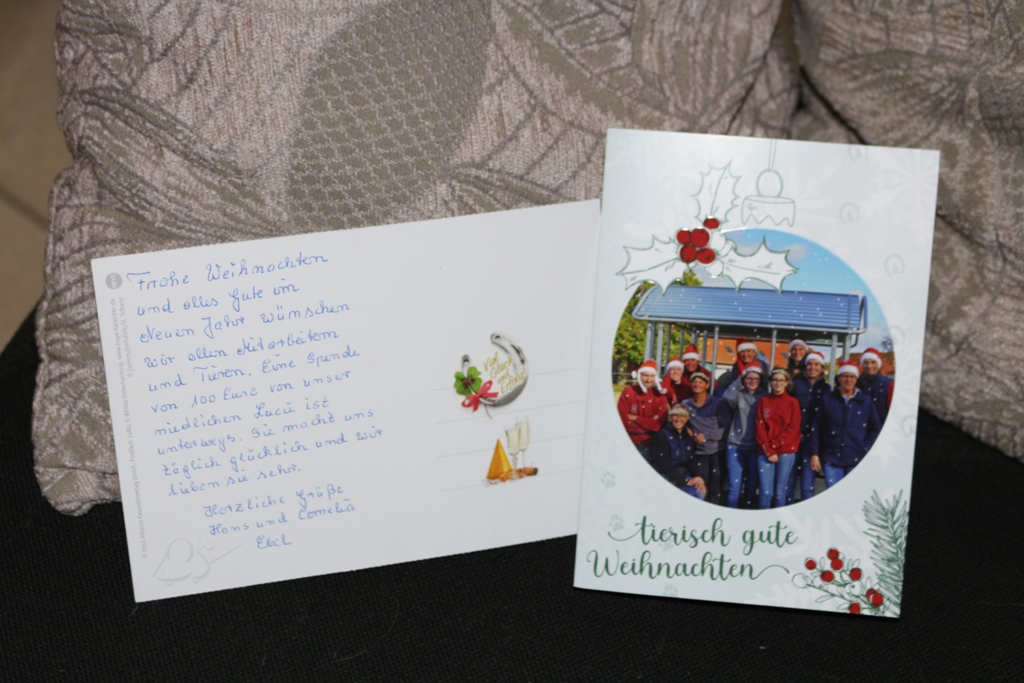 Frohe Weihnachten
und alles Gute im
Neuen Jahr wünschen
wir allen Mitarbeitern
und Tieren. Eine Spende
von 100 Euro von unser
niedlichen Lucii ist
unterwegs. Sie macht uns
täglich glücklich und wir
lieben sie sehr.
Herzliche Grüße
Hans und Cornelia
Ebel
Viel
tierisch gute
Weihnachten